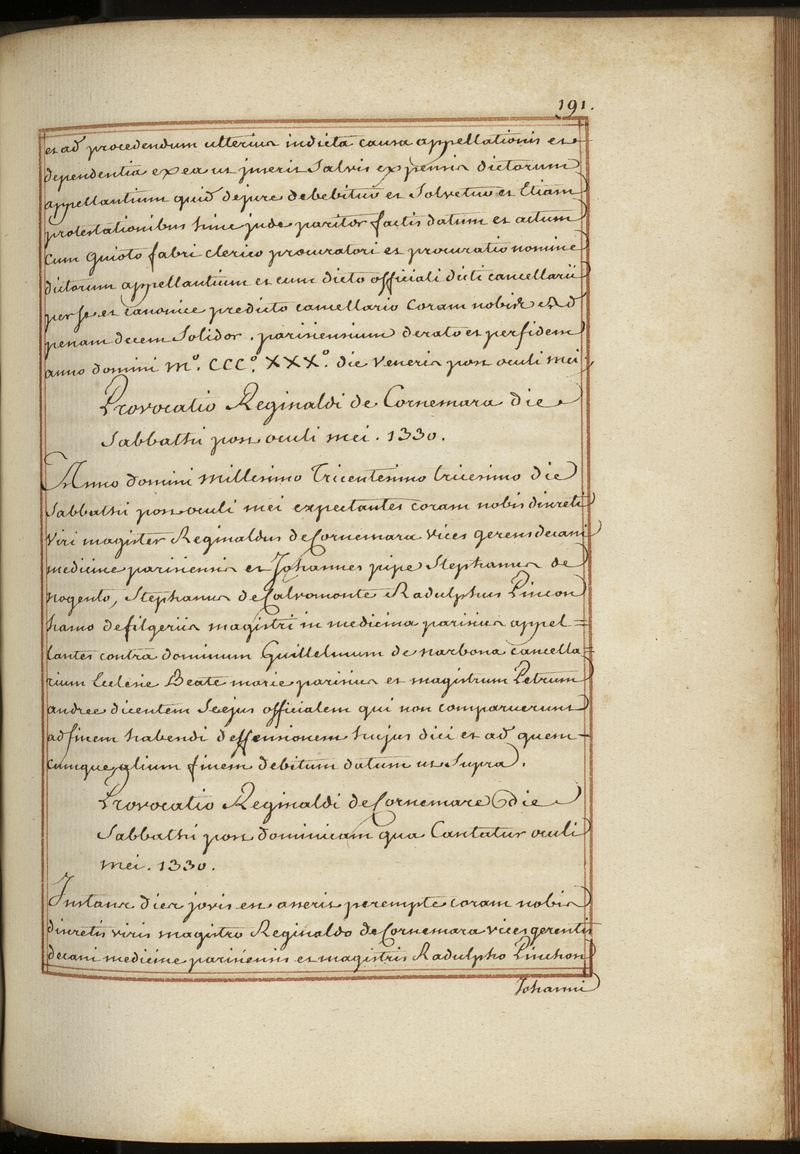 191.
et ad procedendum ulterius indicta causa appellationis et
dependentia ex ea ut jueris Salvis expensis dictorum
appellantium quid dejure debebitur et Solvetur et Etiam
protestationibus hinc jnde pariter factis datum et actum
Cum Guioto fabri clerico procuratori et procuratio nomine
dictorum appellantium et cum dicto officiali dicti cancellarii
per se et canonice predicto cancellario Coram nobis Ad
penam decem Solidor. parisiensium derato et perfidem
anno domini M°. CCC°. XXX°. die Veneris post oculi mei
Provocatio Reginaldi de Cornemara die
Sabbathi post oculi mei. 1330.
Anno domini Millesimo Tricentesimo tricesimo die
Sabbathi post oculi mei expectantes coram nobis discreti
Viri magister Reginaldus de Cornemara Vices gerens decani
medicine parisiensis et Johannes pipe Stephanus de
Nogento, Stephanus de Calvomonte Radulphus Pincon
hamo defilgeriis magistri in medicina parisius appel=
lantes contra dominum Guillelmum de narbona cancella=
rium Eclesie Beate marie parisius et magistrum Petrum
andree dicentem Se ejus officialem qui non comparuerunt
adfinem habendi deffensionem hujus dici et ad quem-
Cumque alium finem debitum datum ut Supra.
Provocatio Reginaldi de Cornemare die
Sabbathi post dominicam qua Cantatur oculi
mei. 1330.
Instans dies jovis est aneris perempte coram nobis
discretis viris magistro Reginaldo de Cornemara vices gerentis
decani medicine parisiensis et magistris Radulpho Pinchon
Johanni